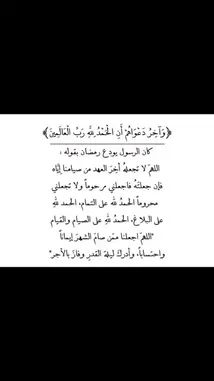 ﴿وَآخِرُ دَعْوَاهُمْ أَنِ الْحَمْدُ لِلَّهِ رَبِّ الْعَالَمِينَ﴾
كان الرسول يودع رمضان بقوله :
اللهمّ لا تجعلهُ آخرَ العهد من صيامنا إيَّاه
فإن جعلتَهُ فاجعلني مرحوماً ولا تجعلني
محروماً الحمدُ لله على التمام، الحمد للهِ
على البلاغ، الحمدُ للهِ على الصيام والقيام
"اللهمّ اجعلنا ممّن صامَ الشهرَ إيماناً
واحتساباً، وأدركَ ليلة القدرِ وفازَ بالأجر"